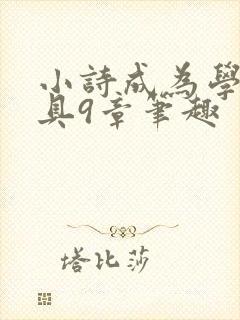 小詩成為學
具9章筆趣
塔比莎